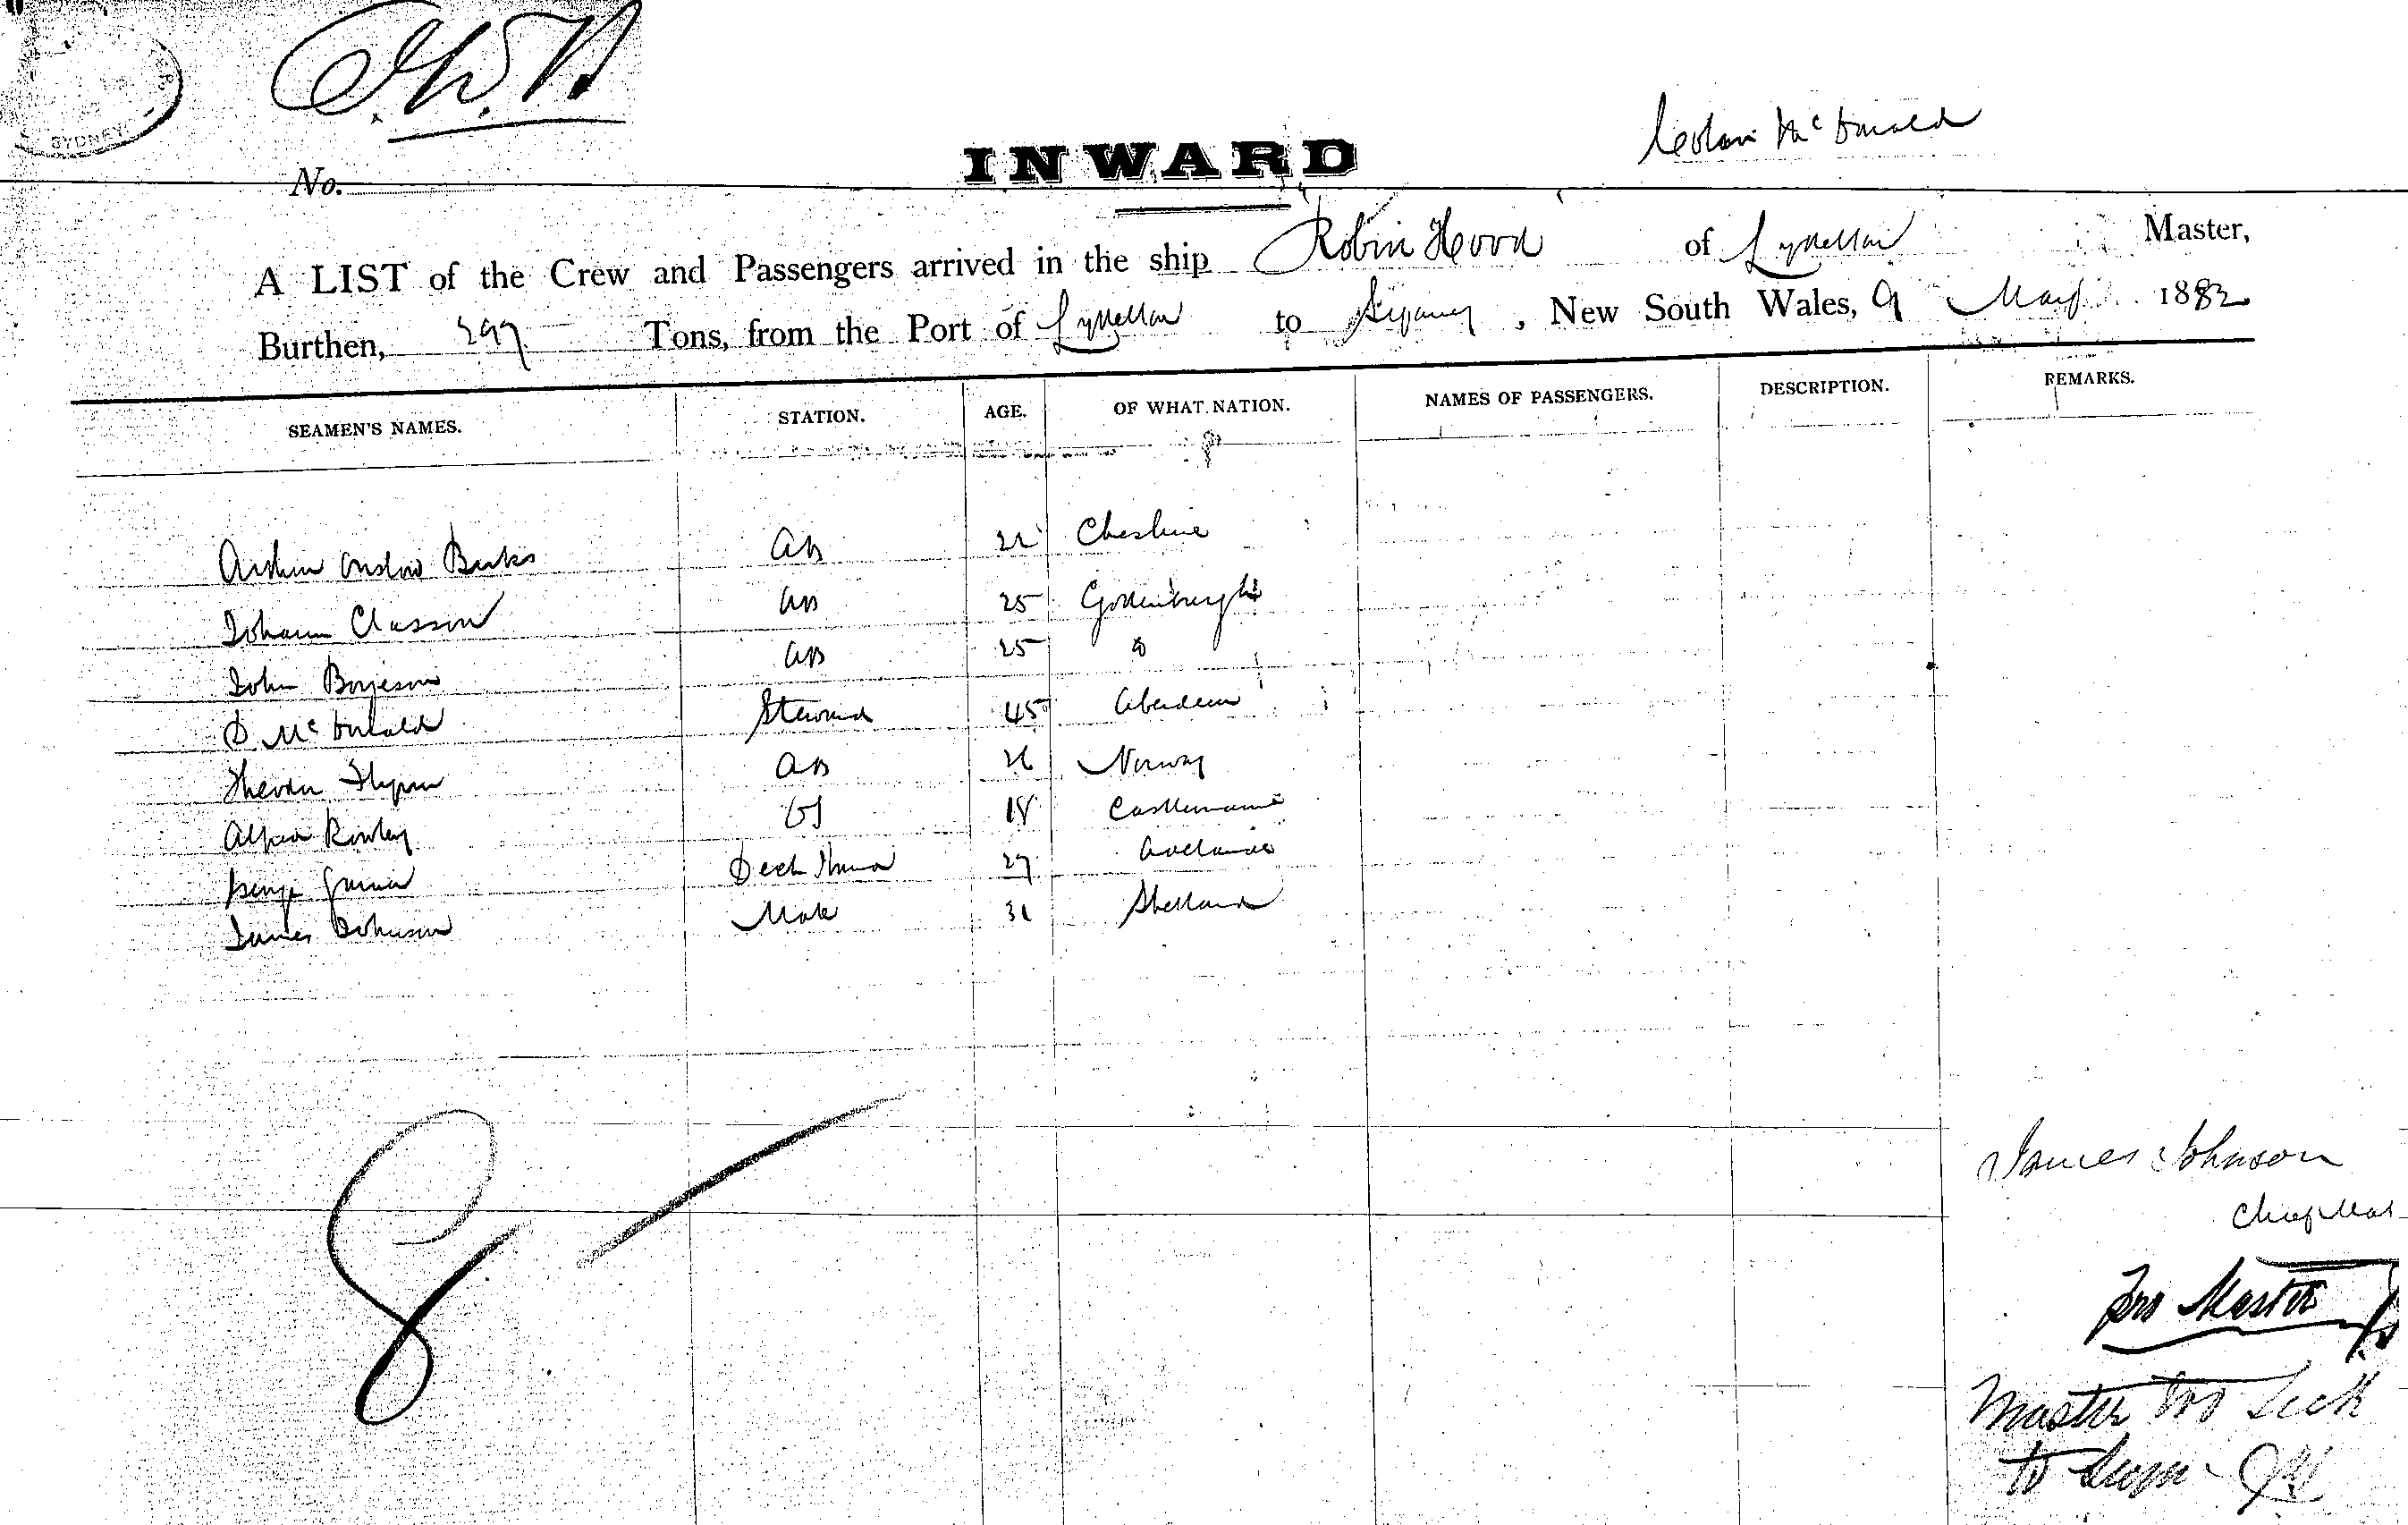 SYDNEY
No.
INWARD
McDonald
A LIST of the Crew and Passengers arrived in the ship Robin Hood of Lyttelton Master,
Burthen, 297 Tons, from the Port of Lyttelton to Sydney, New South Wales, 9 May 1882
SEAMEN'S NAMES. STATION. AGE. OF WHAT NATION. NAMES OF PASSENGERS. DESCRIPTION. REMARKS.
Arthur Onslow AB Cheshire
Johann Classon AB 25 Gottenburgh
John Borjeson AB 25 Do
D McDonald Steward 45 Aberdeen
AB Norway
Alfred Rowley OS 18 Castlemaine
Deck Hand 27 Adelaide
James Johnson Mate 31 Shetland
James Johnson
Chief Mate
Pro Master
Master too sick
to sign